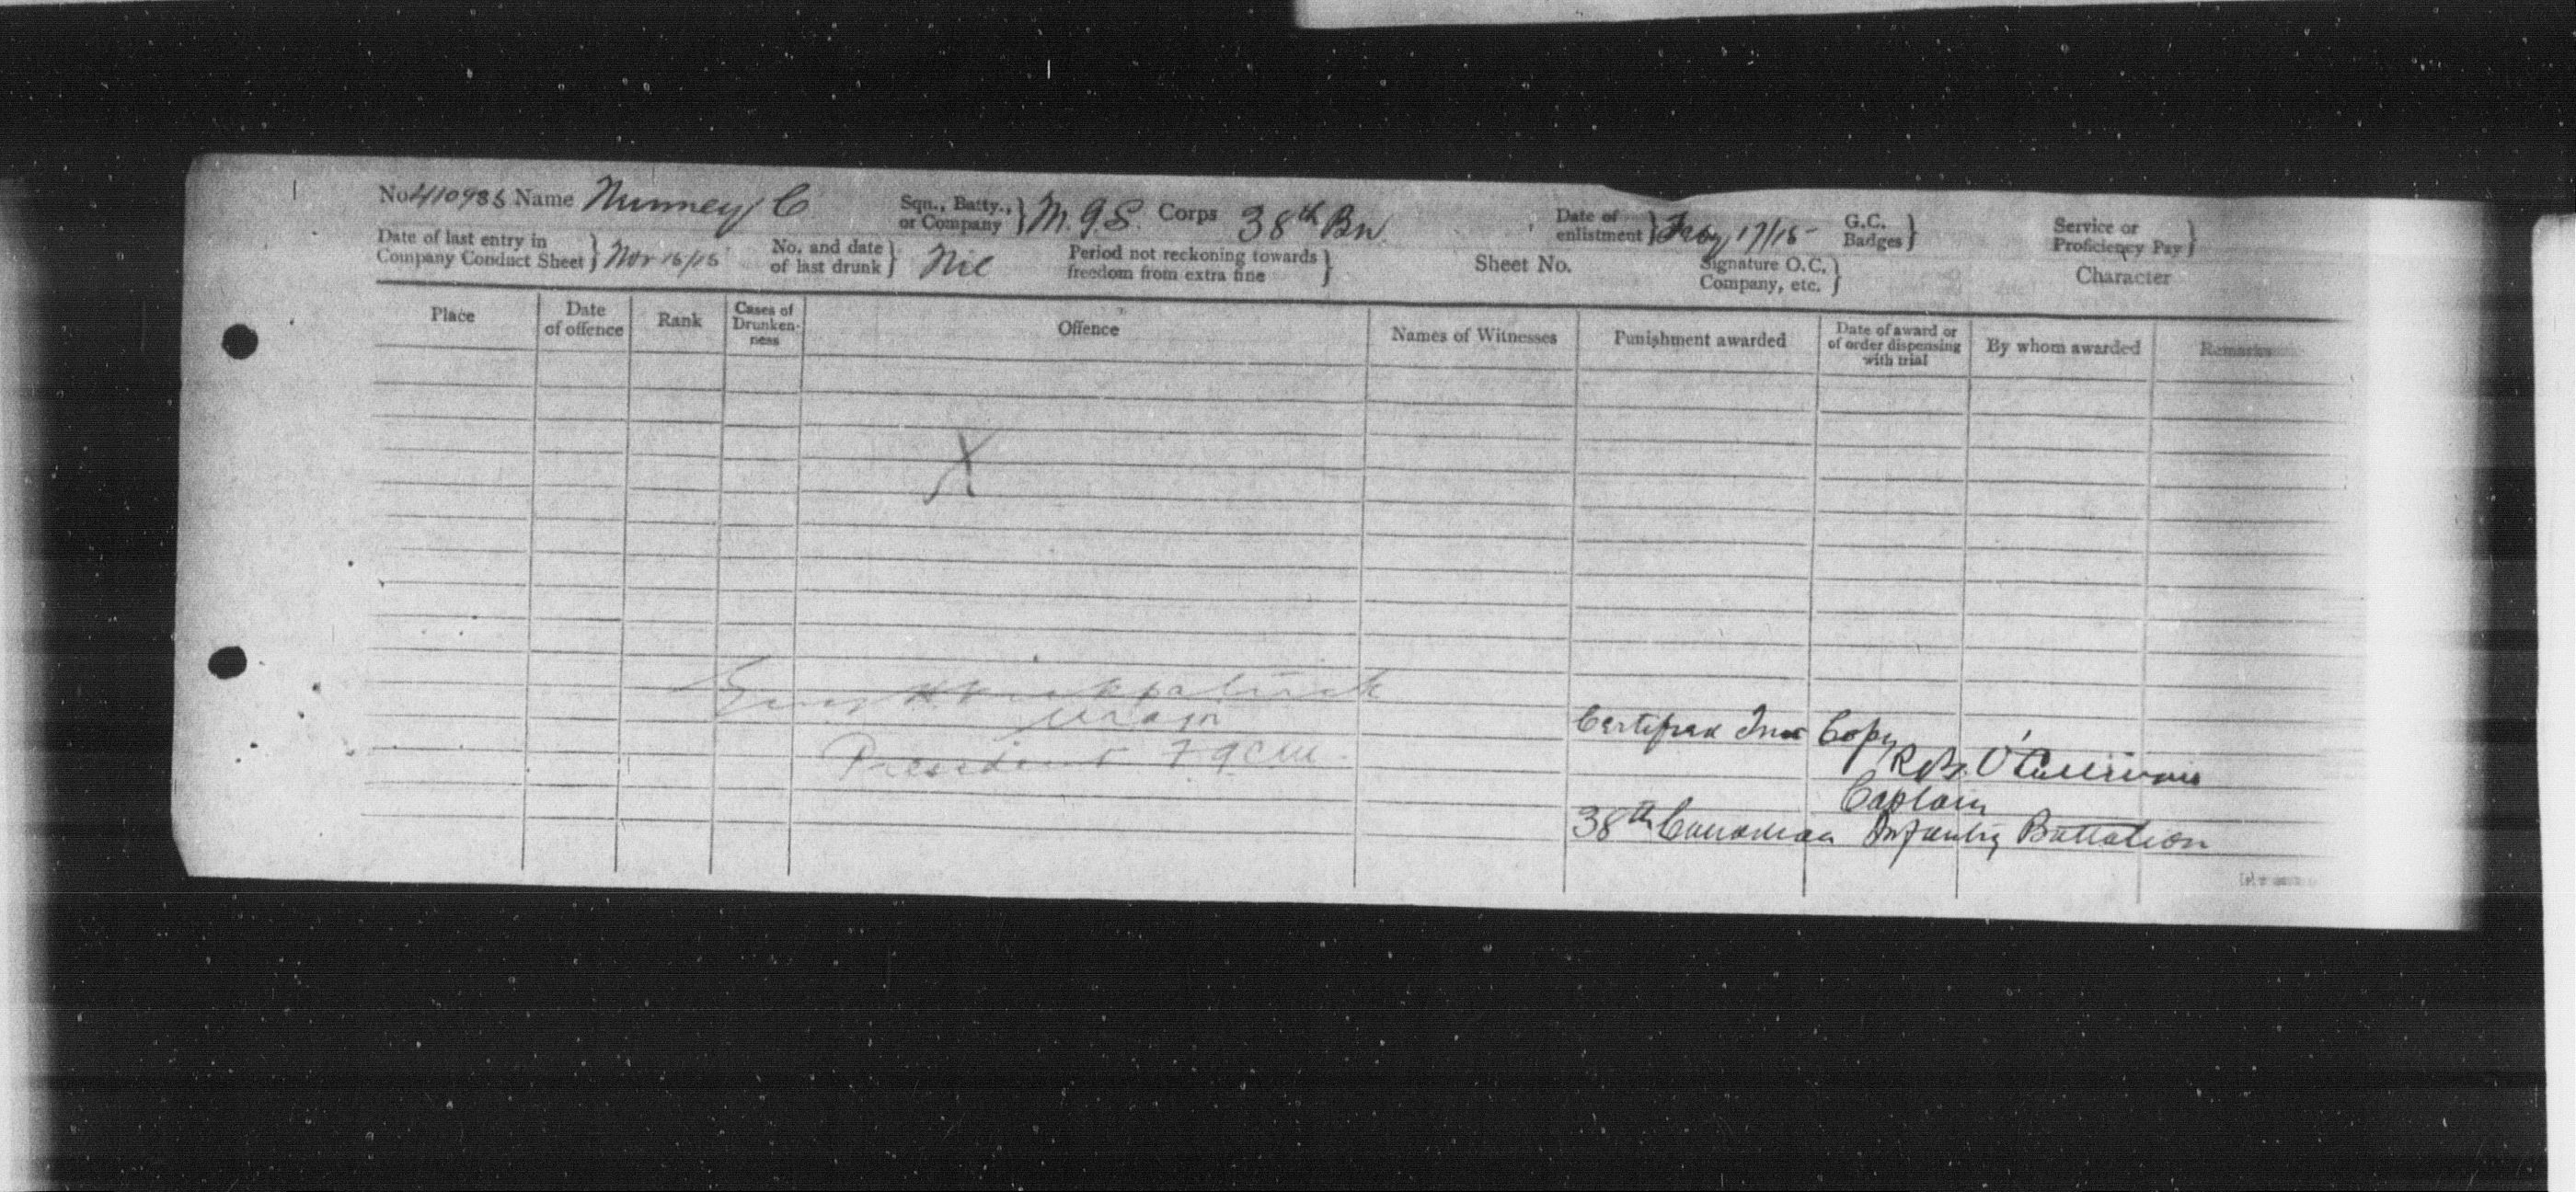 No 410935 Name Nunney, C Sqn., Batty., or Company } M.G.S. Corps 38th Bn. Date of enlistment } Feby 17/15 G.C. Badges } Service or Proficiency Pay }
Date of last entry in Company Conduct Sheet } Nov 15/15 No. and date of last drunk } Nil Period not reckoning towards freedom from extra fine } Sheet No. Signature O.C. Company, etc. } Character
Place Date of offence Rank Cases of Drunken-ness Offence Names of Witnesses Punishment awarded Date of award or of order dispensing with trial By whom awarded Remarks
X
Kirkpatrick
Major
President F.G.C.M.
Certified True Copy
Captain
38th Canadian Infantry Battalion